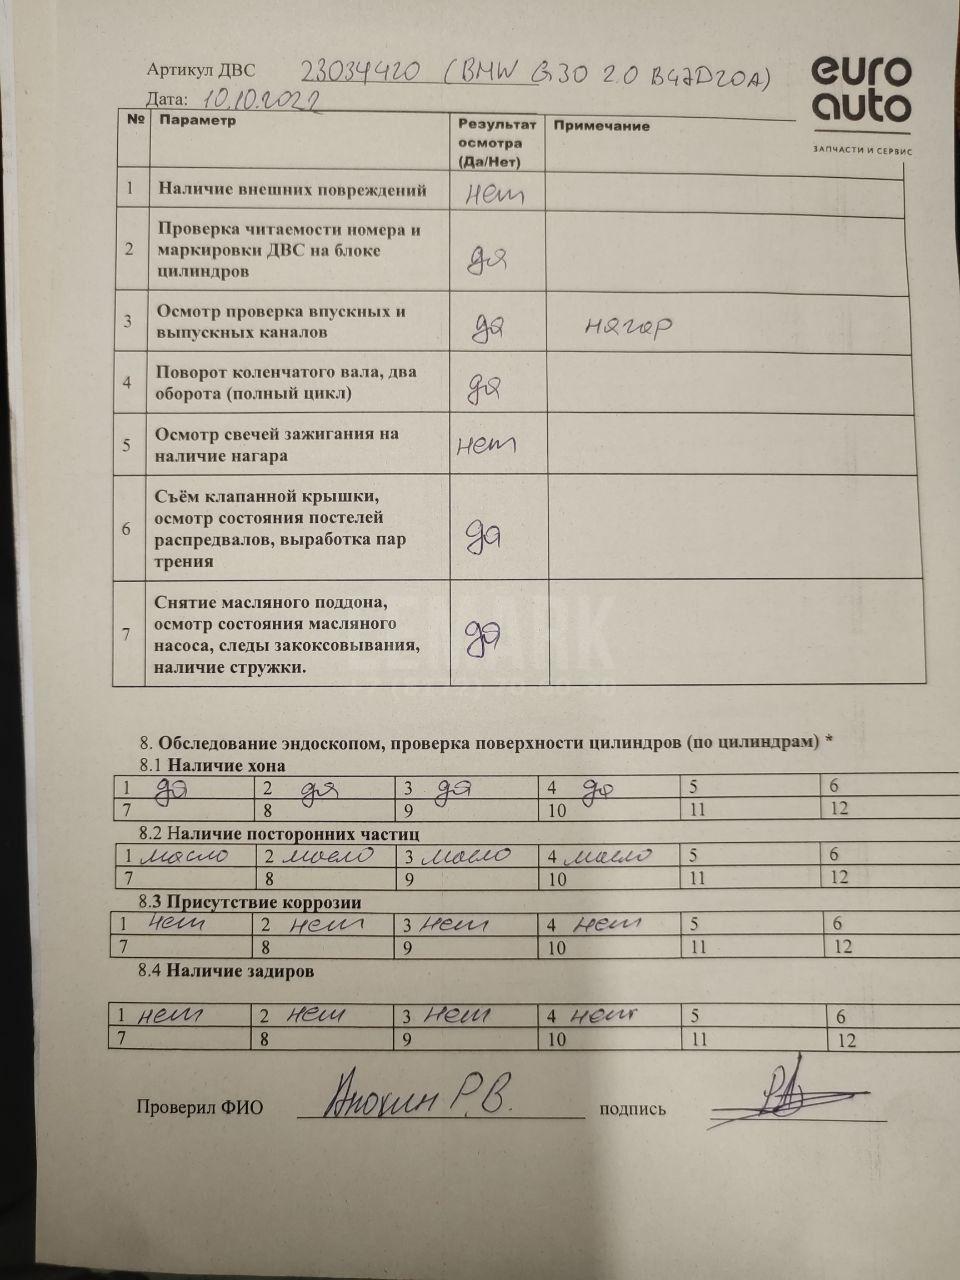 Артикул ДВС 23034420 (BMW G30 2.0 B47D20A)
euro
auto
ЗАПЧАСТИ И СЕРВИС
Дата: 10.10.2022
№ Параметр Результат осмотра (Да/Нет) Примечание
1 Наличие внешних повреждений нет
2 Проверка читаемости номера и
маркировки ДВС на блоке
цилиндров да
3 Осмотр проверка впускных и
выпускных каналов да нагар
4 Поворот коленчатого вала, два
оборота (полный цикл) да
5 Осмотр свечей зажигания на
наличие нагара нет
6 Съём клапанной крышки,
осмотр состояния постелей
распредвалов, выработка пар
трения да
7 Снятие масляного поддона,
осмотр состояния масляного
насоса, следы закоксовывания,
наличие стружки. да
8. Обследование эндоскопом, проверка поверхности цилиндров (по цилиндрам) *
8.1 Наличие хона
1 да 2 да 3 да 4 да 5 6
7 8 9 10 11 12
8.2 Наличие посторонних частиц
1 масло 2 масло 3 масло 4 масло 5 6
7 8 9 10 11 12
8.3 Присутствие коррозии
1 нет 2 нет 3 нет 4 нет 5 6
7 8 9 10 11 12
8.4 Наличие задиров
1 нет 2 нет 3 нет 4 нет 5 6
7 8 9 10 11 12
Проверил ФИО Анохин Р.В. подпись